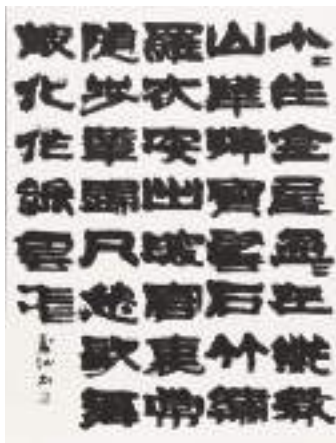 小〻生金屋盈〻在紫微
山華插寶髻石竹繡
羅衣每出深宮裏常
隨步輦歸只愁歌舞
散化作綵雲飛